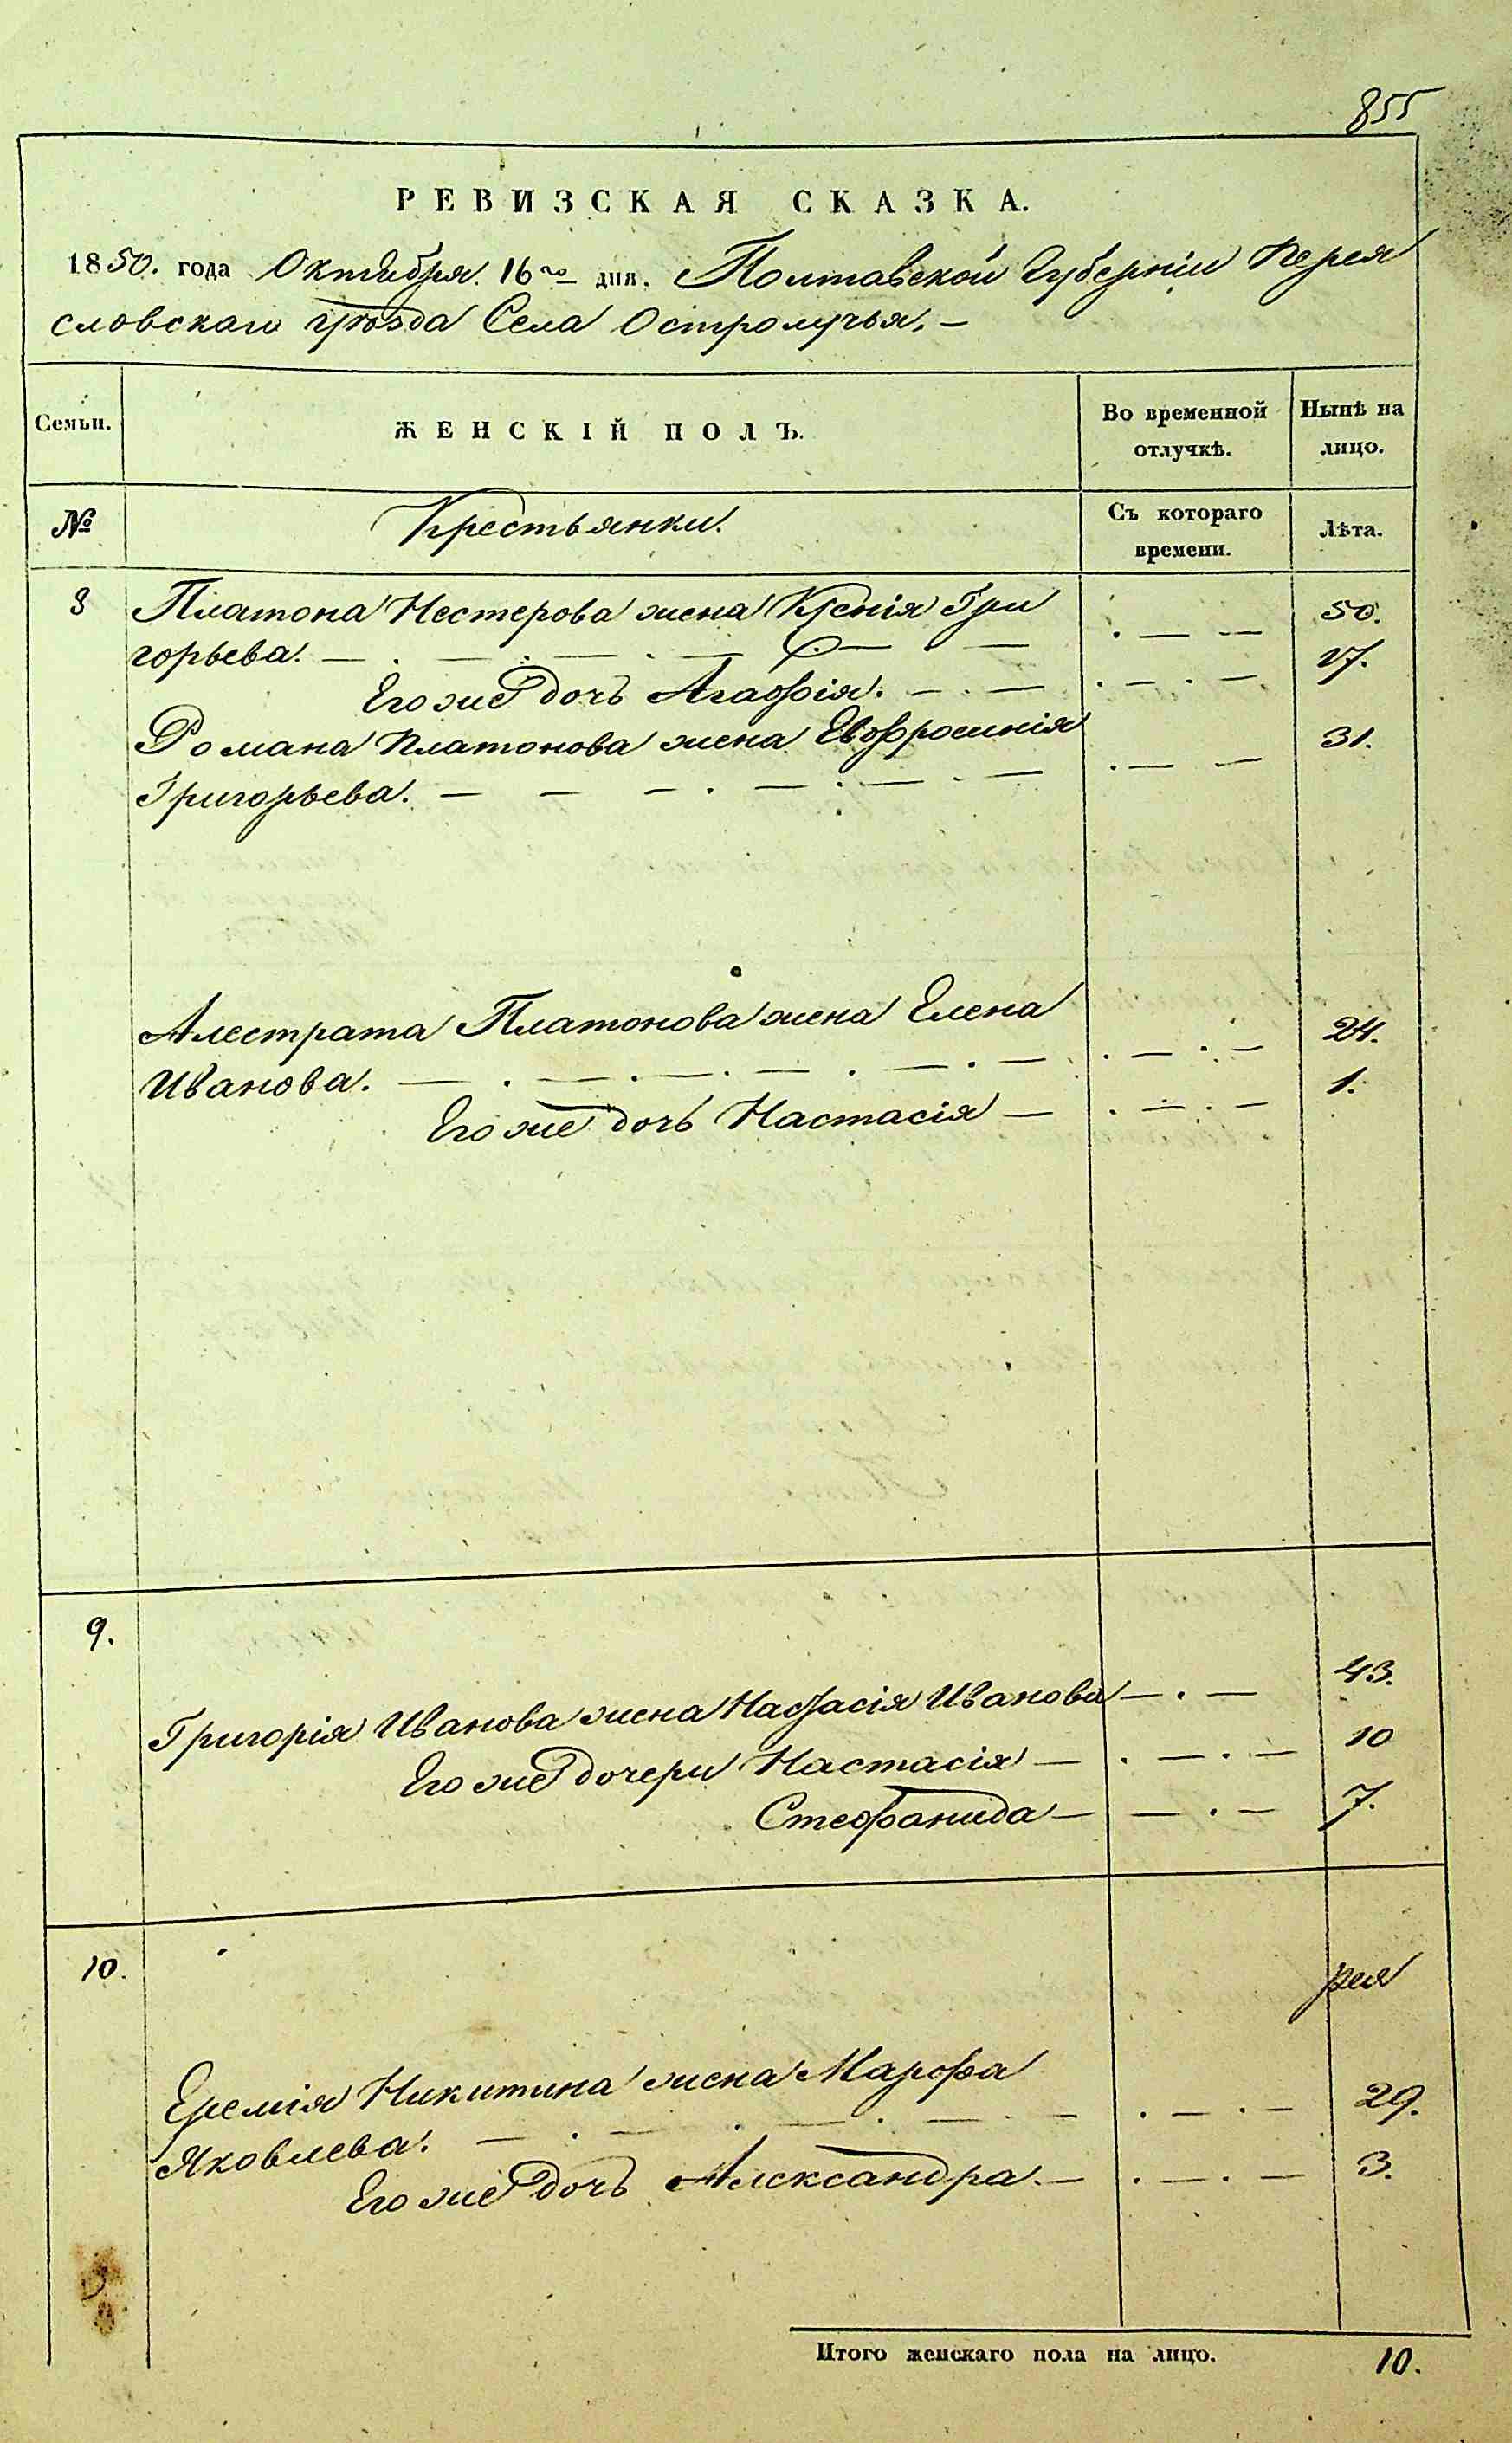 855
РЕВИЗСКАЯ СКАЗКА.
1850. года Октября 16го дня. Полтавской Губерніи Перея
словскаго уѣзда Села Остролучья. —
Семьи.
ЖЕНСКІЙ ПОЛЪ.
Во временной отлучкѣ.
Нынѣ на лицо.
№
Крестьянки.
Съ котораго времени.
Лѣта.
8 Платона Нестерова жена Ксенія Гри 50.
горьева. — . — . — . — — . — . — —
Его же дочь Агафія. — . — . — . — 17.
Романа Платонова жена Евфросинія 31.
Григорьева. — — — . — . — . — . — —
Алестрата Платонова жена Елена 24.
Иванова. — . — . — . — . — . — . — . —
Его же дочь Настасія — . — . — 1.
9. Григорія Иванова жена Настасія Иванова — . — 43.
Его же дочери Настасія — . — . — 10
Стефанида — — . — 7.
10.
Еремія Никитина жена Марфа 29.
Яковлева. — . — . — . — . — . — . —
Его же дочь Александра. — . — . — 3.
Итого женскаго пола на лицо. 10.